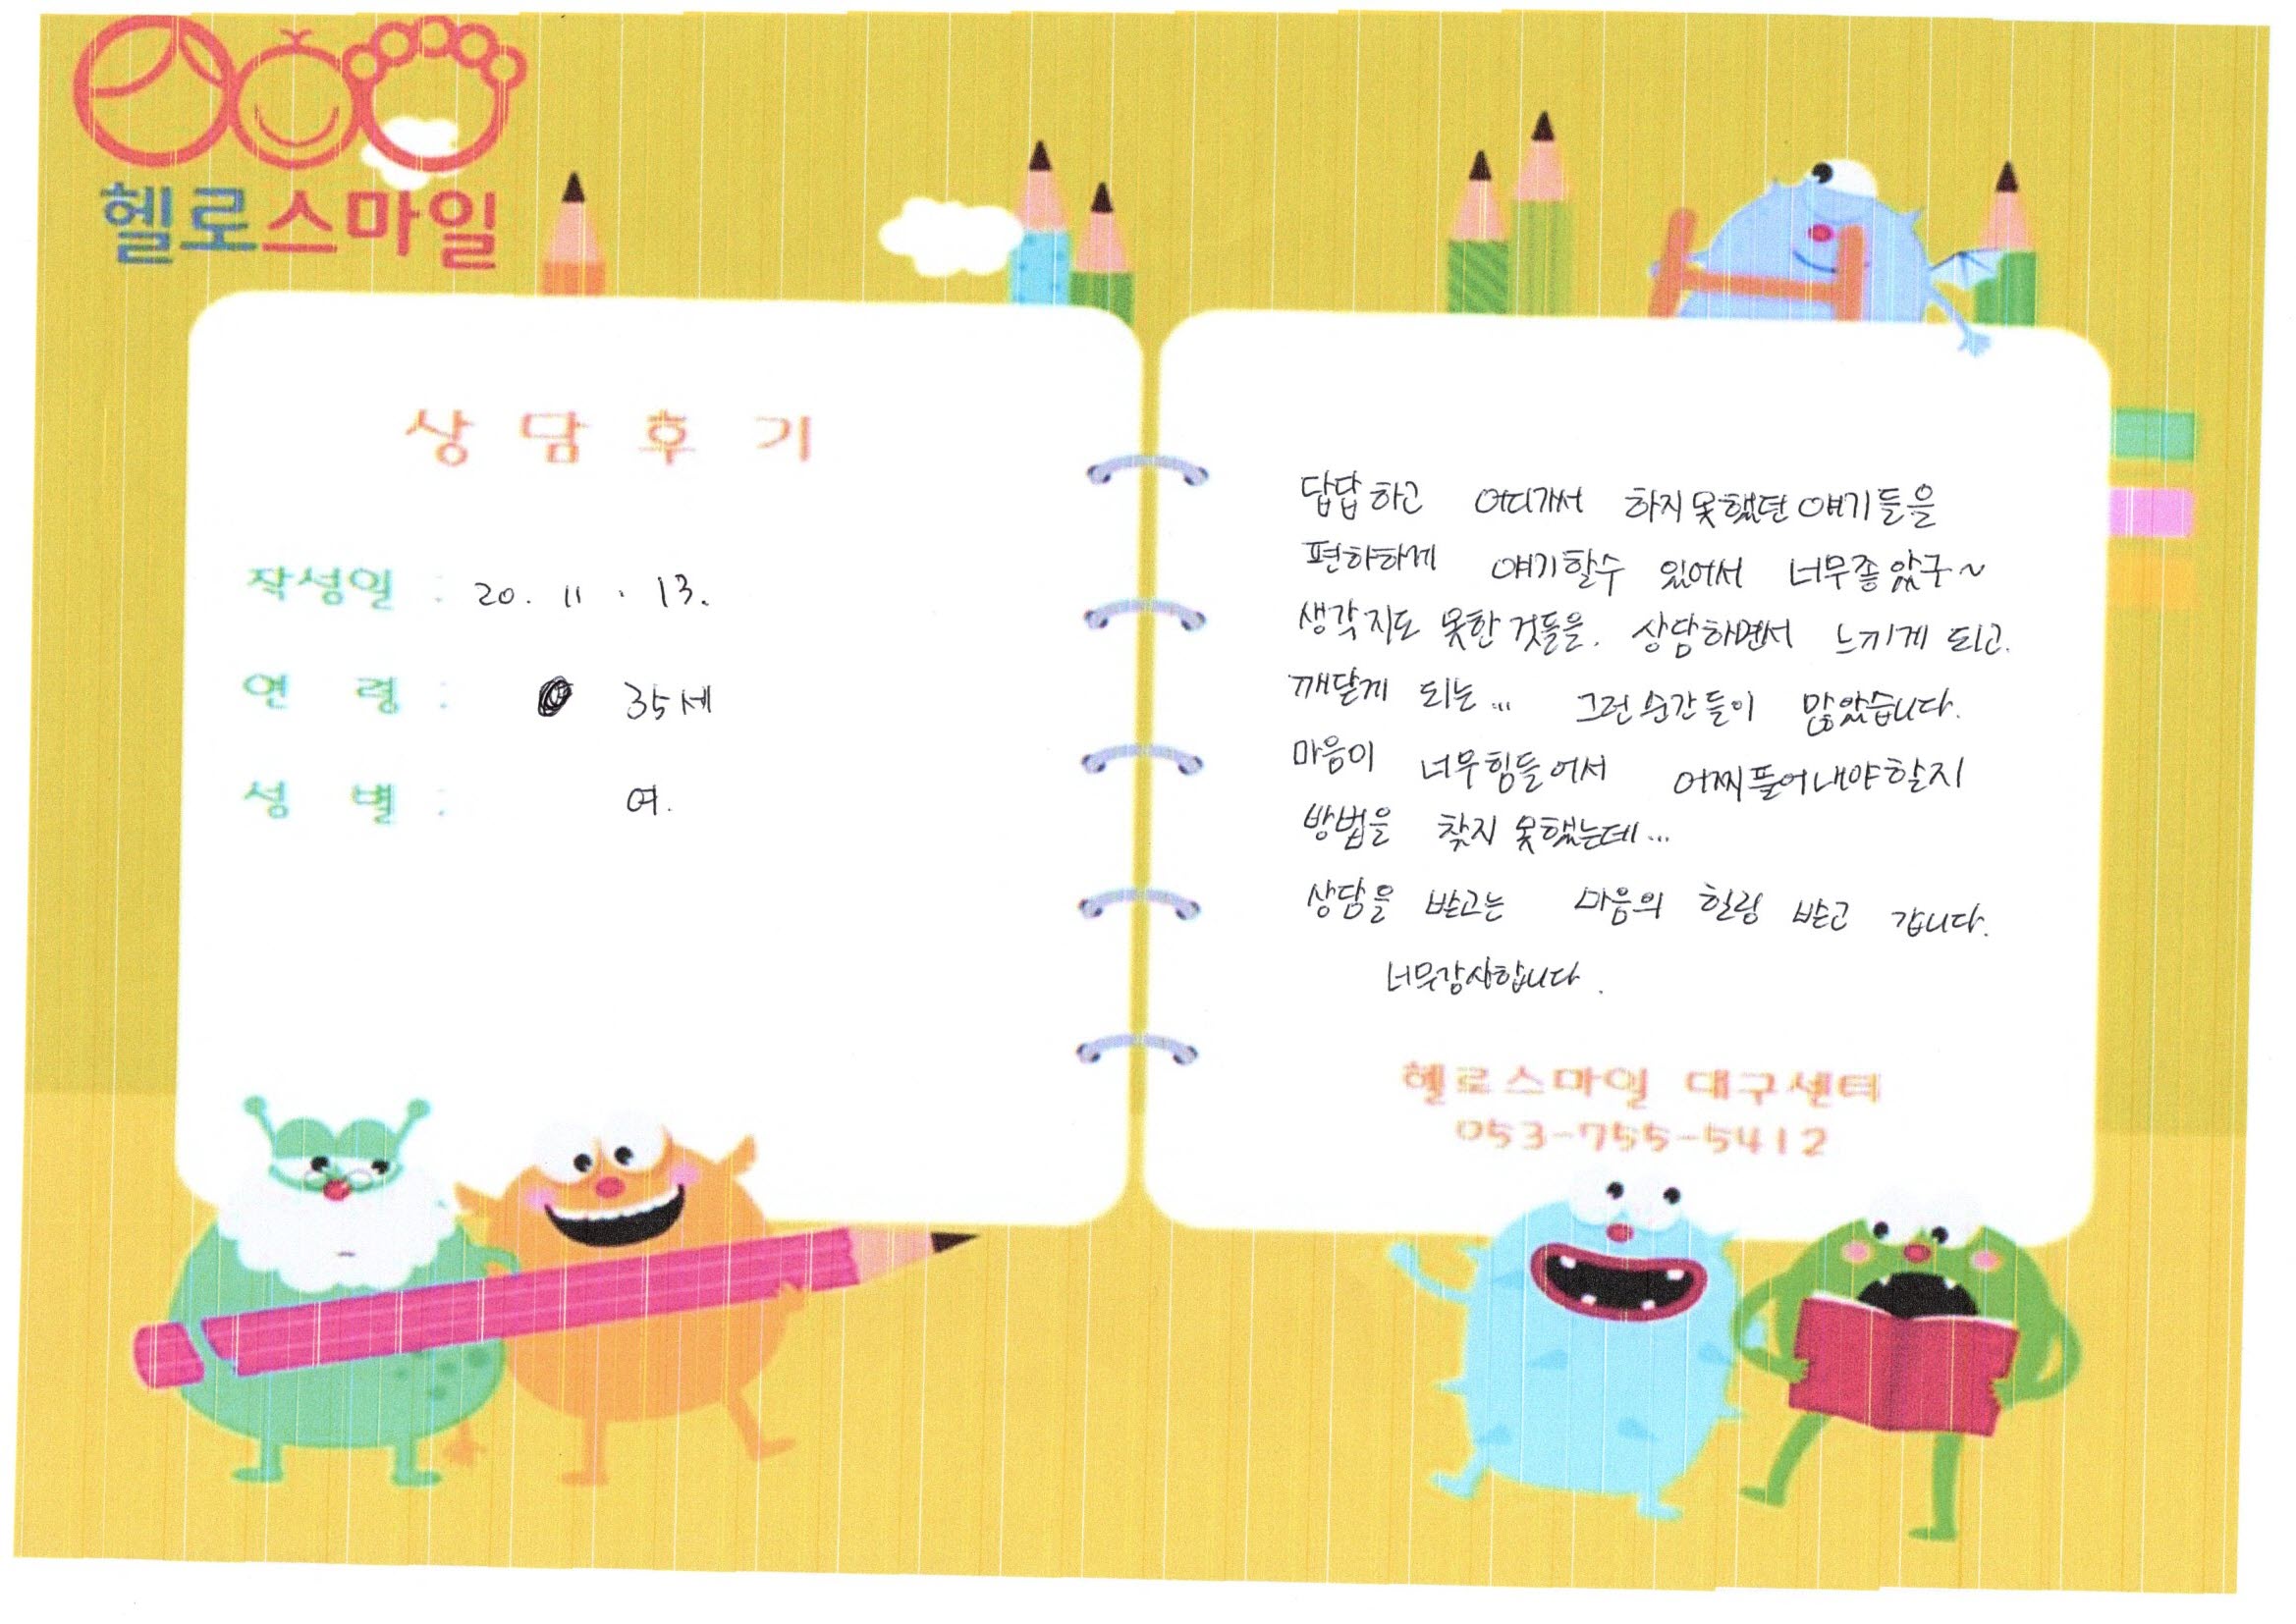 헬로스마일
상 담 후 기
작성일 : 20. 11. 13.
연 령 : 35세
성 별 : 여.
답답하고 어디가서 하지못했던 얘기들을
편하하게 얘기할수 있어서 너무좋았구~
생각지도 못한것들을. 상담하면서 느끼게 되고.
깨닫게 되는... 그런순간들이 많았습니다.
마음이 너무힘들어서 어찌풀어내야할지
방법을 찾지 못했는데...
상담을 받고는 마음의 힐링 받고 갑니다.
너무감사합니다.
헬로스마일 대구센터
053-755-5412